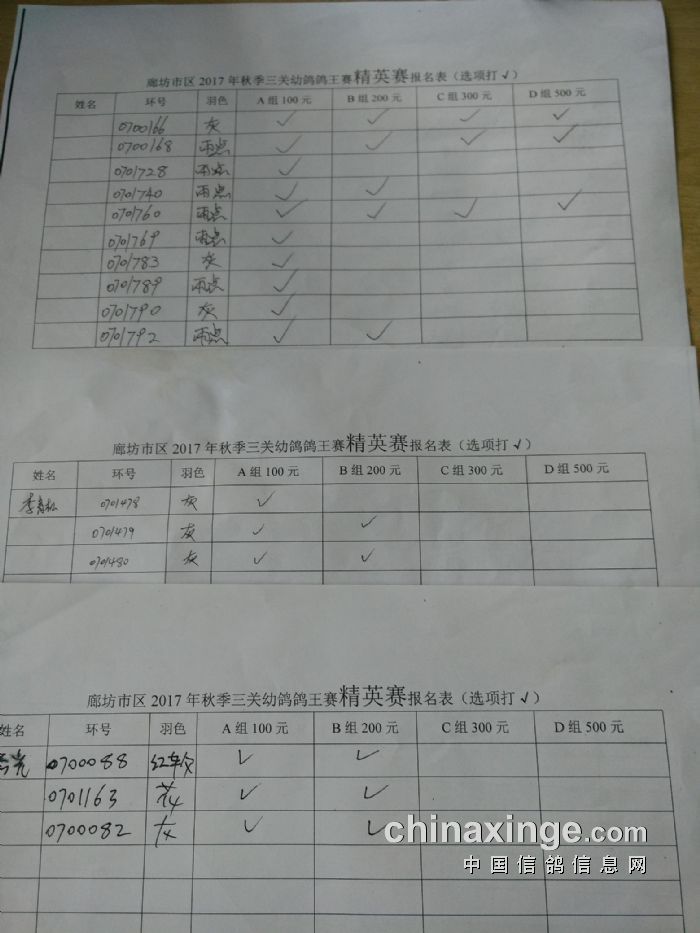 廊坊市区 2017 年秋季三关幼鸽鸽王赛精英赛报名表（选项打 √ ）
姓名 环号 羽色 A 组 100 元 B 组 200 元 C 组 300 元 D 组 500 元
0700166 灰 ✓ ✓ ✓ ✓
0700168 雨点 ✓ ✓ ✓ ✓
0701728 雨点 ✓
0701740 雨点 ✓ ✓
0701760 雨点 ✓ ✓ ✓ ✓
0701769 雨点 ✓
0701783 灰 ✓
0701789 雨点 ✓
0701790 灰 ✓
0701792 雨点 ✓ ✓
廊坊市区 2017 年秋季三关幼鸽鸽王赛精英赛报名表（选项打 √ ）
姓名 环号 羽色 A 组 100 元 B 组 200 元 C 组 300 元 D 组 500 元
李青松 0701478 灰 ✓
0701479 灰 ✓ ✓
0701480 灰 ✓ ✓
廊坊市区 2017 年秋季三关幼鸽鸽王赛精英赛报名表（选项打 √ ）
姓名 环号 羽色 A 组 100 元 B 组 200 元 C 组 300 元 D 组 500 元
0700088 红轮 ✓ ✓
0701163 花 ✓ ✓
0700082 灰 ✓ ✓
chinaxinge.com
中国信鸽信息网